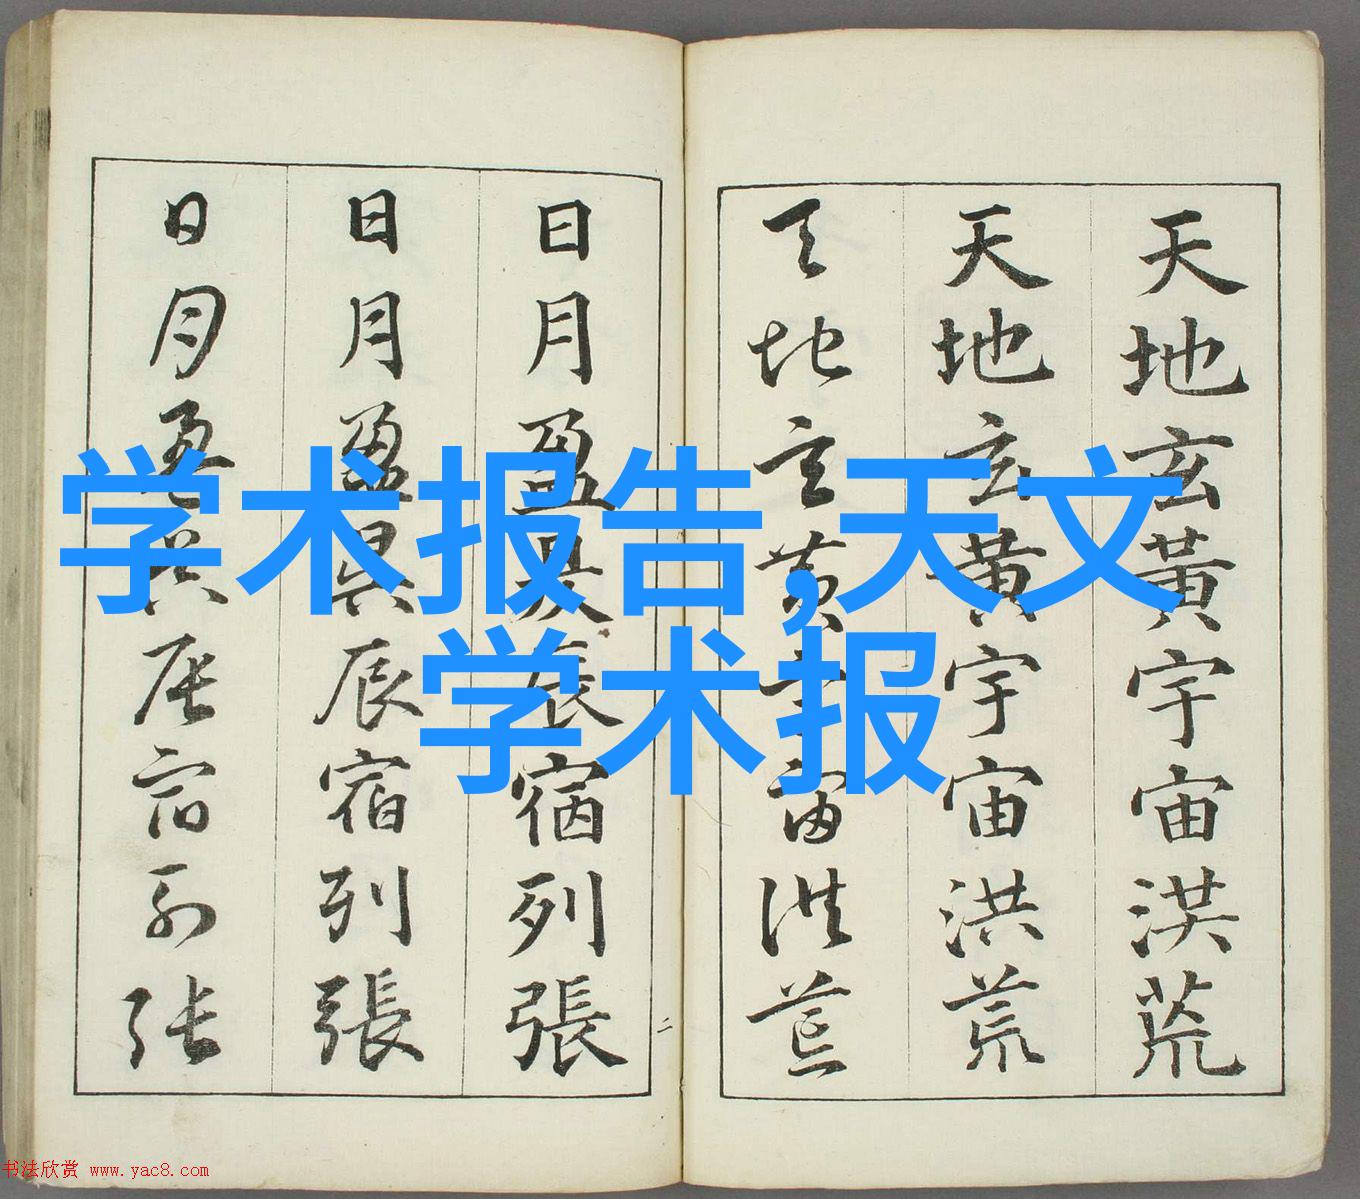 天地玄黃宇宙洪荒
天地玄黄宇宙洪荒
天地玄黄宇宙洪荒
日月盈昃辰宿列張
日月盈昃辰宿列張
日月盈昃辰宿列張
二
学术报告,天文
学术报
书法欣赏 www.yac8.com